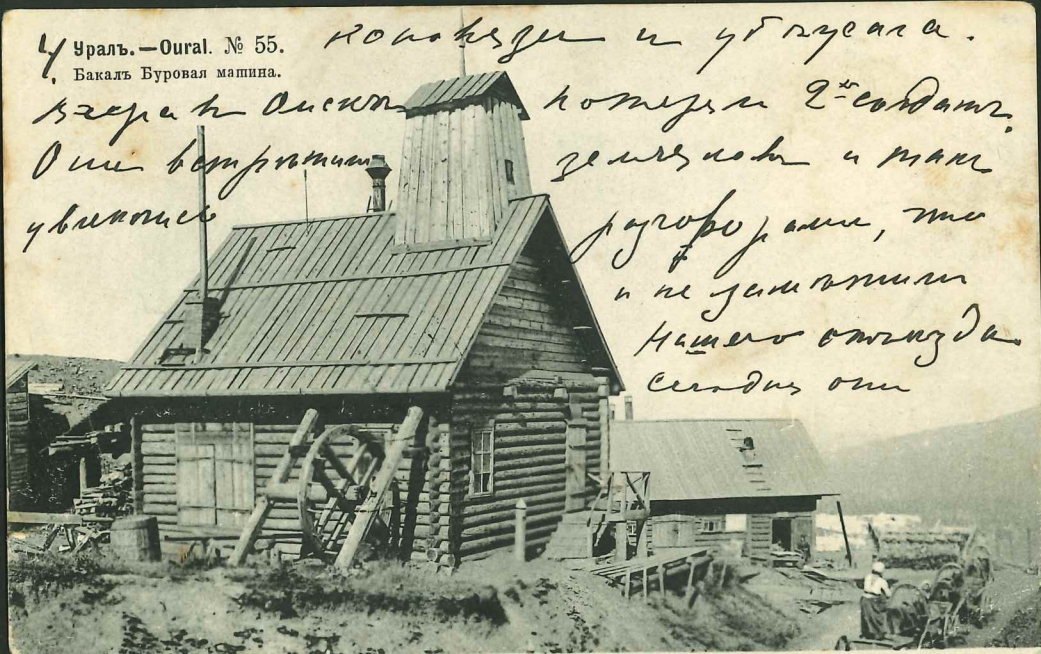 4.
Уралъ.—Oural. № 55.
Бакалъ Буровая машина.
и
вчера въ Омскѣ потеряли 2-хъ солдатъ.
Они встрѣтили земляковъ и такъ
увлеклись разговорами, что
и не замѣтили
нашего отъѣзда
Сегодня они